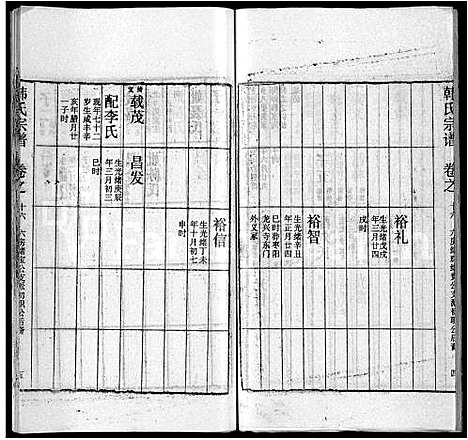 韩氏宗谱
卷之十六
四
裕礼
生光绪戊戌
年三月廿四
戌时
裕智
生光绪辛丑
年正月廿四
巳时葬枣阳
龙兴寺东门
外义冢
裕信
生光绪丁未
年十月初七
申时
昌发
生光绪庚辰
年三月初三
巳时
载茂
配李氏
现年七十二
岁生咸丰辛
亥年腊月廿
一子时
韩氏宗谱
卷之十六
五